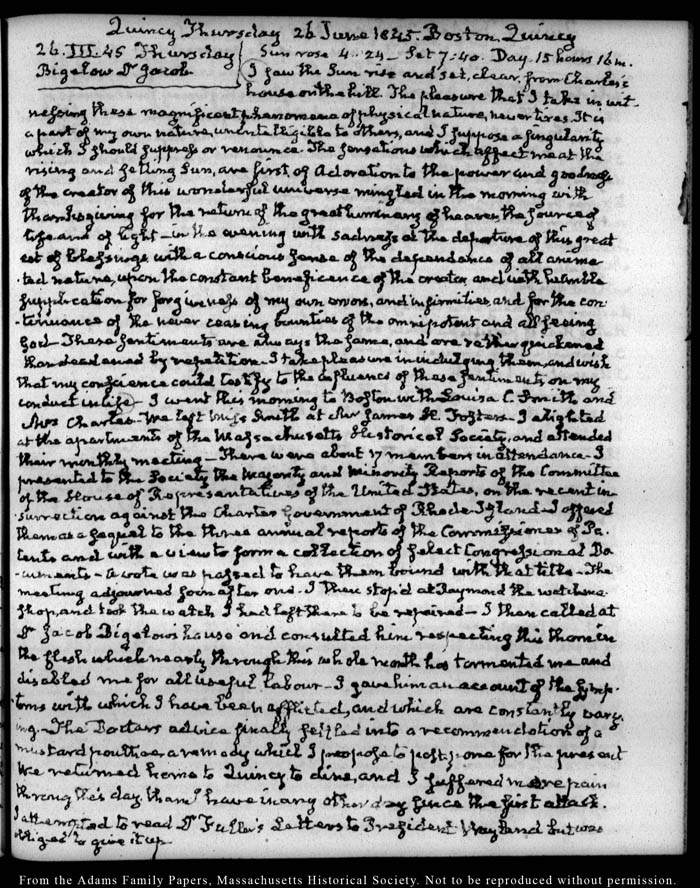 Quincy Thursday 26 June 1845. Boston Quincy
26. III. 45 Thursday Sun rose 4..24 — Set 7:40. Day. 15 hours 16 m.
Bigelow Dr Jacob I saw the Sun rise and set, clear, from Charles's
house on the hill. The pleasure that I take in wit-
nessing these magnificent phenomena of physical nature, never tires. It is
a part of my own nature, unintelligible to others, and I suppose a singularity
which I should suppress or renounce. The sensations which affect me at the
rising and setting Sun, are first, of adoration to the power and goodness
of the creator of this wonderful universe mingled in the morning with
thanksgiving for the return of the great luminary of heaven the source of
life and of light — in the evening with sadness at the departure of this great
est of blessings with a conscious sense of the dependance of all anima-
ted nature, upon the constant beneficence of the creator, and with humble
supplication for forgiveness of my own errors, and infirmities, and for the con-
tinuance of the never ceasing bounties of the omnipotent and all seeing
God — These sentiments are always the same, and are rather quickened
than deadened by repetition. I take pleasure in indulging them, and wish
that my conscience could testify to the influence of these sentiments on my
conduct in life — I went this morning to Boston with Louisa C. Smith and
Mrs Charles. We left Miss Smith at Mr James H. Foster's. I alighted
at the apartments of the Massachusetts Historical Society, and attended
their monthly meeting — There were about 17 members in attendance — I
presented to the Society the Majority and Minority Reports of the Committee
of the House of Representatives of the United States, on the recent in-
surrection against the Charter Government of Rhode-Island — I offered
them as a sequel to the three annual reports of the Commissioner of Pa-
tents and with a view to form a collection of select Congressional Do-
cuments — a vote was passed to have them bound with that title — The
meeting adjourned soon after one. I then stop'd at Raymond the watchma
shop, and took the watch I had left there to be repaired — I then called at
Dr Jacob Bigelow's house and consulted him respecting this thorn in
the flesh which nearly through this whole month has tormented me and
disabled me for all useful labour — I gave him an account of the symp-
toms with which I have been afflicted, and which are constantly vary-
ing — The Doctors advice finally settled into a recommendation of a
mustard poultice, a remedy which I propose to postpone for the present
We returned home to Quincy to dine, and I suffered more pain
through this day than I have in any other day since the first attack.
I attempted to read Dr Fuller's Letters to President Wayland but was
obliged to give it up
From the Adams Family Papers, Massachusetts Historical Society. Not to be reproduced without permission.